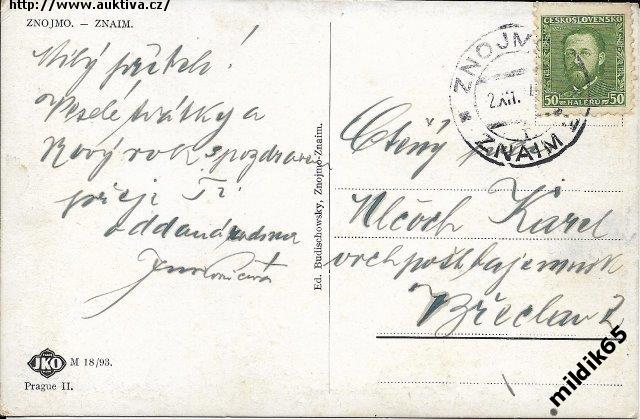 http://www.auktiva.cz/
ZNOJMO. – ZNAIM.
Milý příteli!
Veselé svátky a
Nový rok s pozdravem
přeji Ti
oddaná
JKO M 18/93.
Prague II.
Ed. Budischowsky, Znojmo-Znaim.
ZNOJMO
2.XII.
ZNAIM
ČESKOSLOVENSKO
50 HALÉŘŮ 50
Ctěný pán
Vlčoch Karel
vrch. pošt. tajemník
Břeclav 2
mildik65